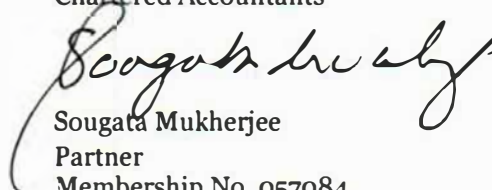 Chartered Accountants
Sougata Mukherjee
Partner
Membership No. 057084